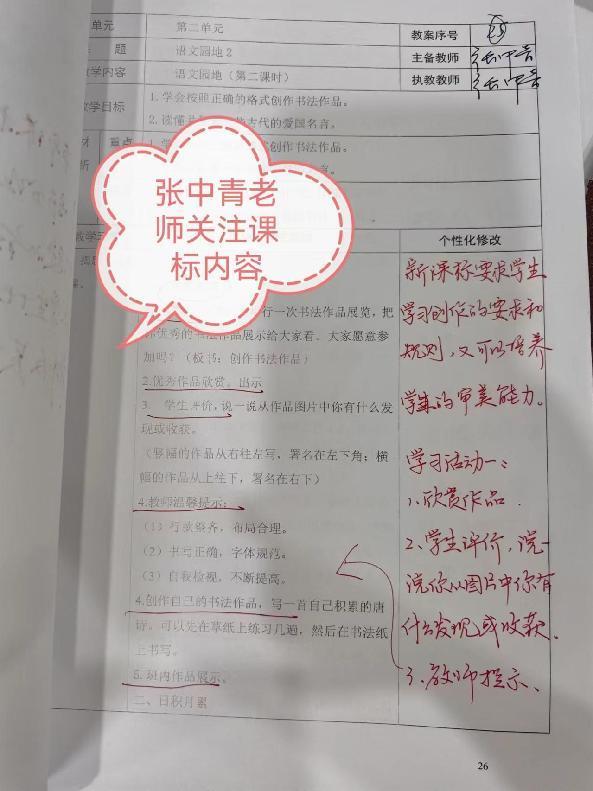 单元 第二单元 教案序号
题 语文园地2 主备教师 张中青
教学内容 语文园地（第二课时） 执教教师 张中青
教学目标 1.学会按照正确的格式创作书法作品。
2.读懂 古代的爱国名言。
重点 创作书法作品。
张中青老
师关注课
标内容
个性化修改
行一次书法作品展览，把
你优秀的书法作品展示给大家看。大家愿意参
加吗？（板书：创作书法作品）
2.优秀作品欣赏。出示
3. 学生评价，说一说从作品图片中你有什么发
现或收获。
（竖幅的作品从右往左写，署名在左下角；横
幅的作品从上往下，署名在右下）
4.教师温馨提示：
（1）行款整齐，布局合理。
（2）书写正确，字体规范。
（3）自我检视，不断提高。
4.创作自己的书法作品，写一首自己积累的唐
诗。可以先在草纸上练习几遍，然后在书法纸
上书写。
5.班内作品展示。
二、日积月累
新课标要求学生
学习创作的要求和
规则，又可以培养
学生的审美能力。
学习活动一：
1、欣赏作品.
2、学生评价，说一
说你从图片中你有
什么发现或收获.
3、教师提示、
26